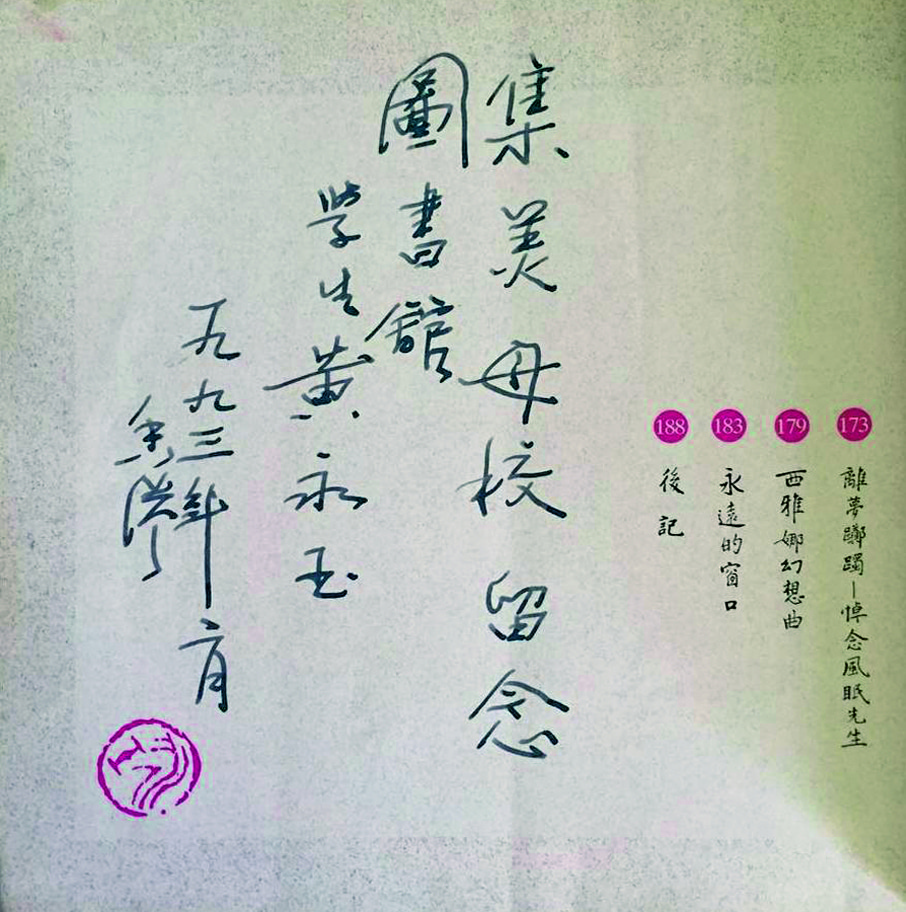 173 離夢躑躅—悼念風眠先生
179 西雅娜幻想曲
183 永遠的窗口
188 後記
集美母校留念
圖書館
學生黃永玉
一九九三年月
香港